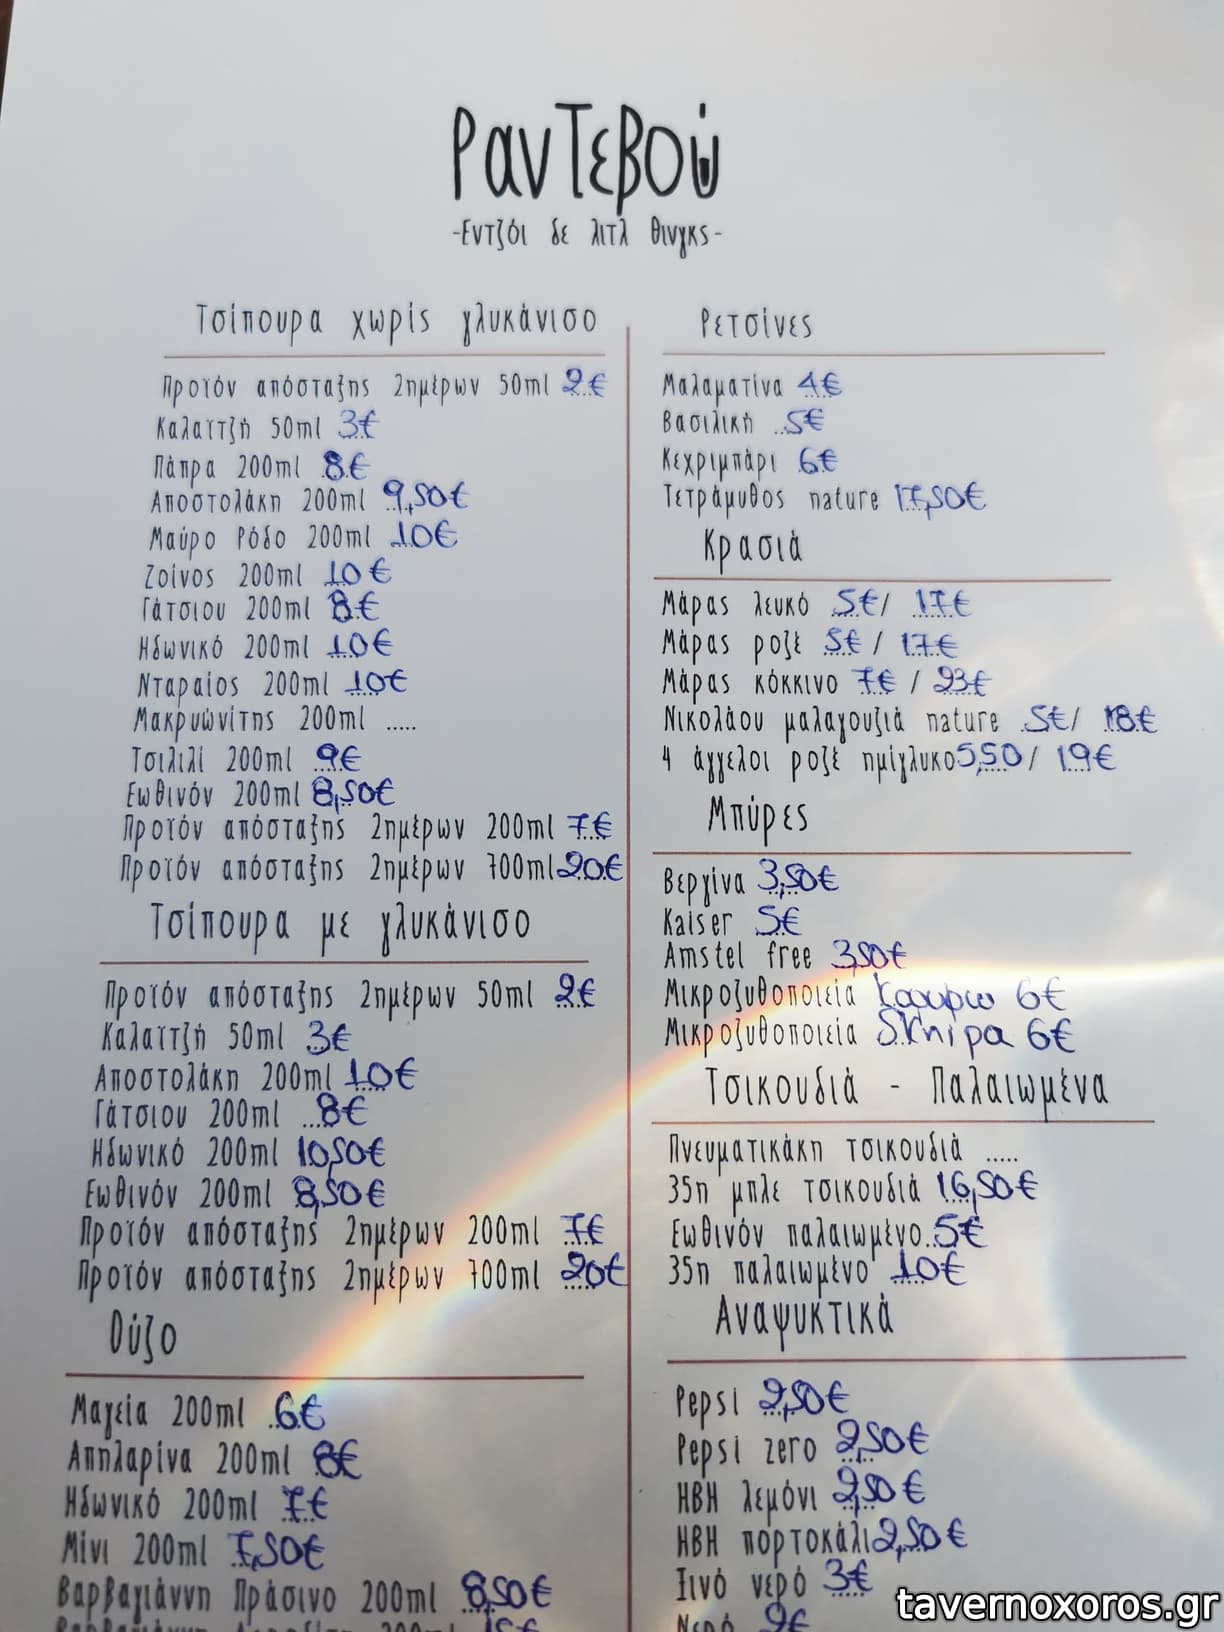 Ραντεβού
-Εντζόι δε λιτλ θινγκς-
Τσίπουρα χωρίς γλυκάνισο
Προϊόν απόσταξης 2ημέρων 50ml 2€
Καλαϊτζή 50ml 3€
Πάπρα 200ml 8€
Αποστολάκη 200ml 9,50€
Μαύρο Ρόδο 200ml 10€
Ζοίνος 200ml 10€
Γάτσιου 200ml 8€
Ηδωνικό 200ml 10€
Νταραίος 200ml 10€
Μακρυωνίτης 200ml .....
Τσιλιλί 200ml 9€
Εωθινόν 200ml 8,50€
Προϊόν απόσταξης 2ημέρων 200ml 7€
Προϊόν απόσταξης 2ημέρων 700ml 20€
Τσίπουρα με γλυκάνισο
Προϊόν απόσταξης 2ημέρων 50ml 2€
Καλαϊτζή 50ml 3€
Αποστολάκη 200ml 10€
Γάτσιου 200ml 8€
Ηδωνικό 200ml 10,50€
Εωθινόν 200ml 8,50€
Προϊόν απόσταξης 2ημέρων 200ml 7€
Προϊόν απόσταξης 2ημέρων 700ml 20€
Ούζο
Μαγεία 200ml 6€
Απηλαρίνα 200ml 8€
Ηδωνικό 200ml 7€
Μίνι 200ml 7,50€
Βαρβαγιάννη Πράσινο 200ml 8,50€
Ρετσίνες
Μαλαματίνα 4€
Βασιλική 5€
Κεχριμπάρι 6€
Τετράμυθος nature 17,50€
Κρασιά
Μάρας λευκό 5€/ 17€
Μάρας ροζέ 5€ / 17€
Μάρας κόκκινο 7€ / 23€
Νικολάου μαλαγουζιά nature 5€/ 18€
4 άγγελοι ροζέ ημίγλυκο 5,50/ 19€
Μπύρες
Βεργίνα 3,50€
Kaiser 5€
Amstel free 3,50€
Μικροζυθοποιεία 6€
Μικροζυθοποιεία Sknipa 6€
Τσικουδιά - Παλαιωμένα
Πνευματικάκη τσικουδιά .....
35η μπλε τσικουδιά 16,50€
Εωθινόν παλαιωμένο 5€
35η παλαιωμένο 10€
Αναψυκτικά
Pepsi 2,50€
Pepsi zero 2,50€
ΗΒΗ λεμόνι 2,50€
ΗΒΗ πορτοκάλι 2,50€
Ξινό νερό 3€
Νερό 2€
tavernoxoros.gr